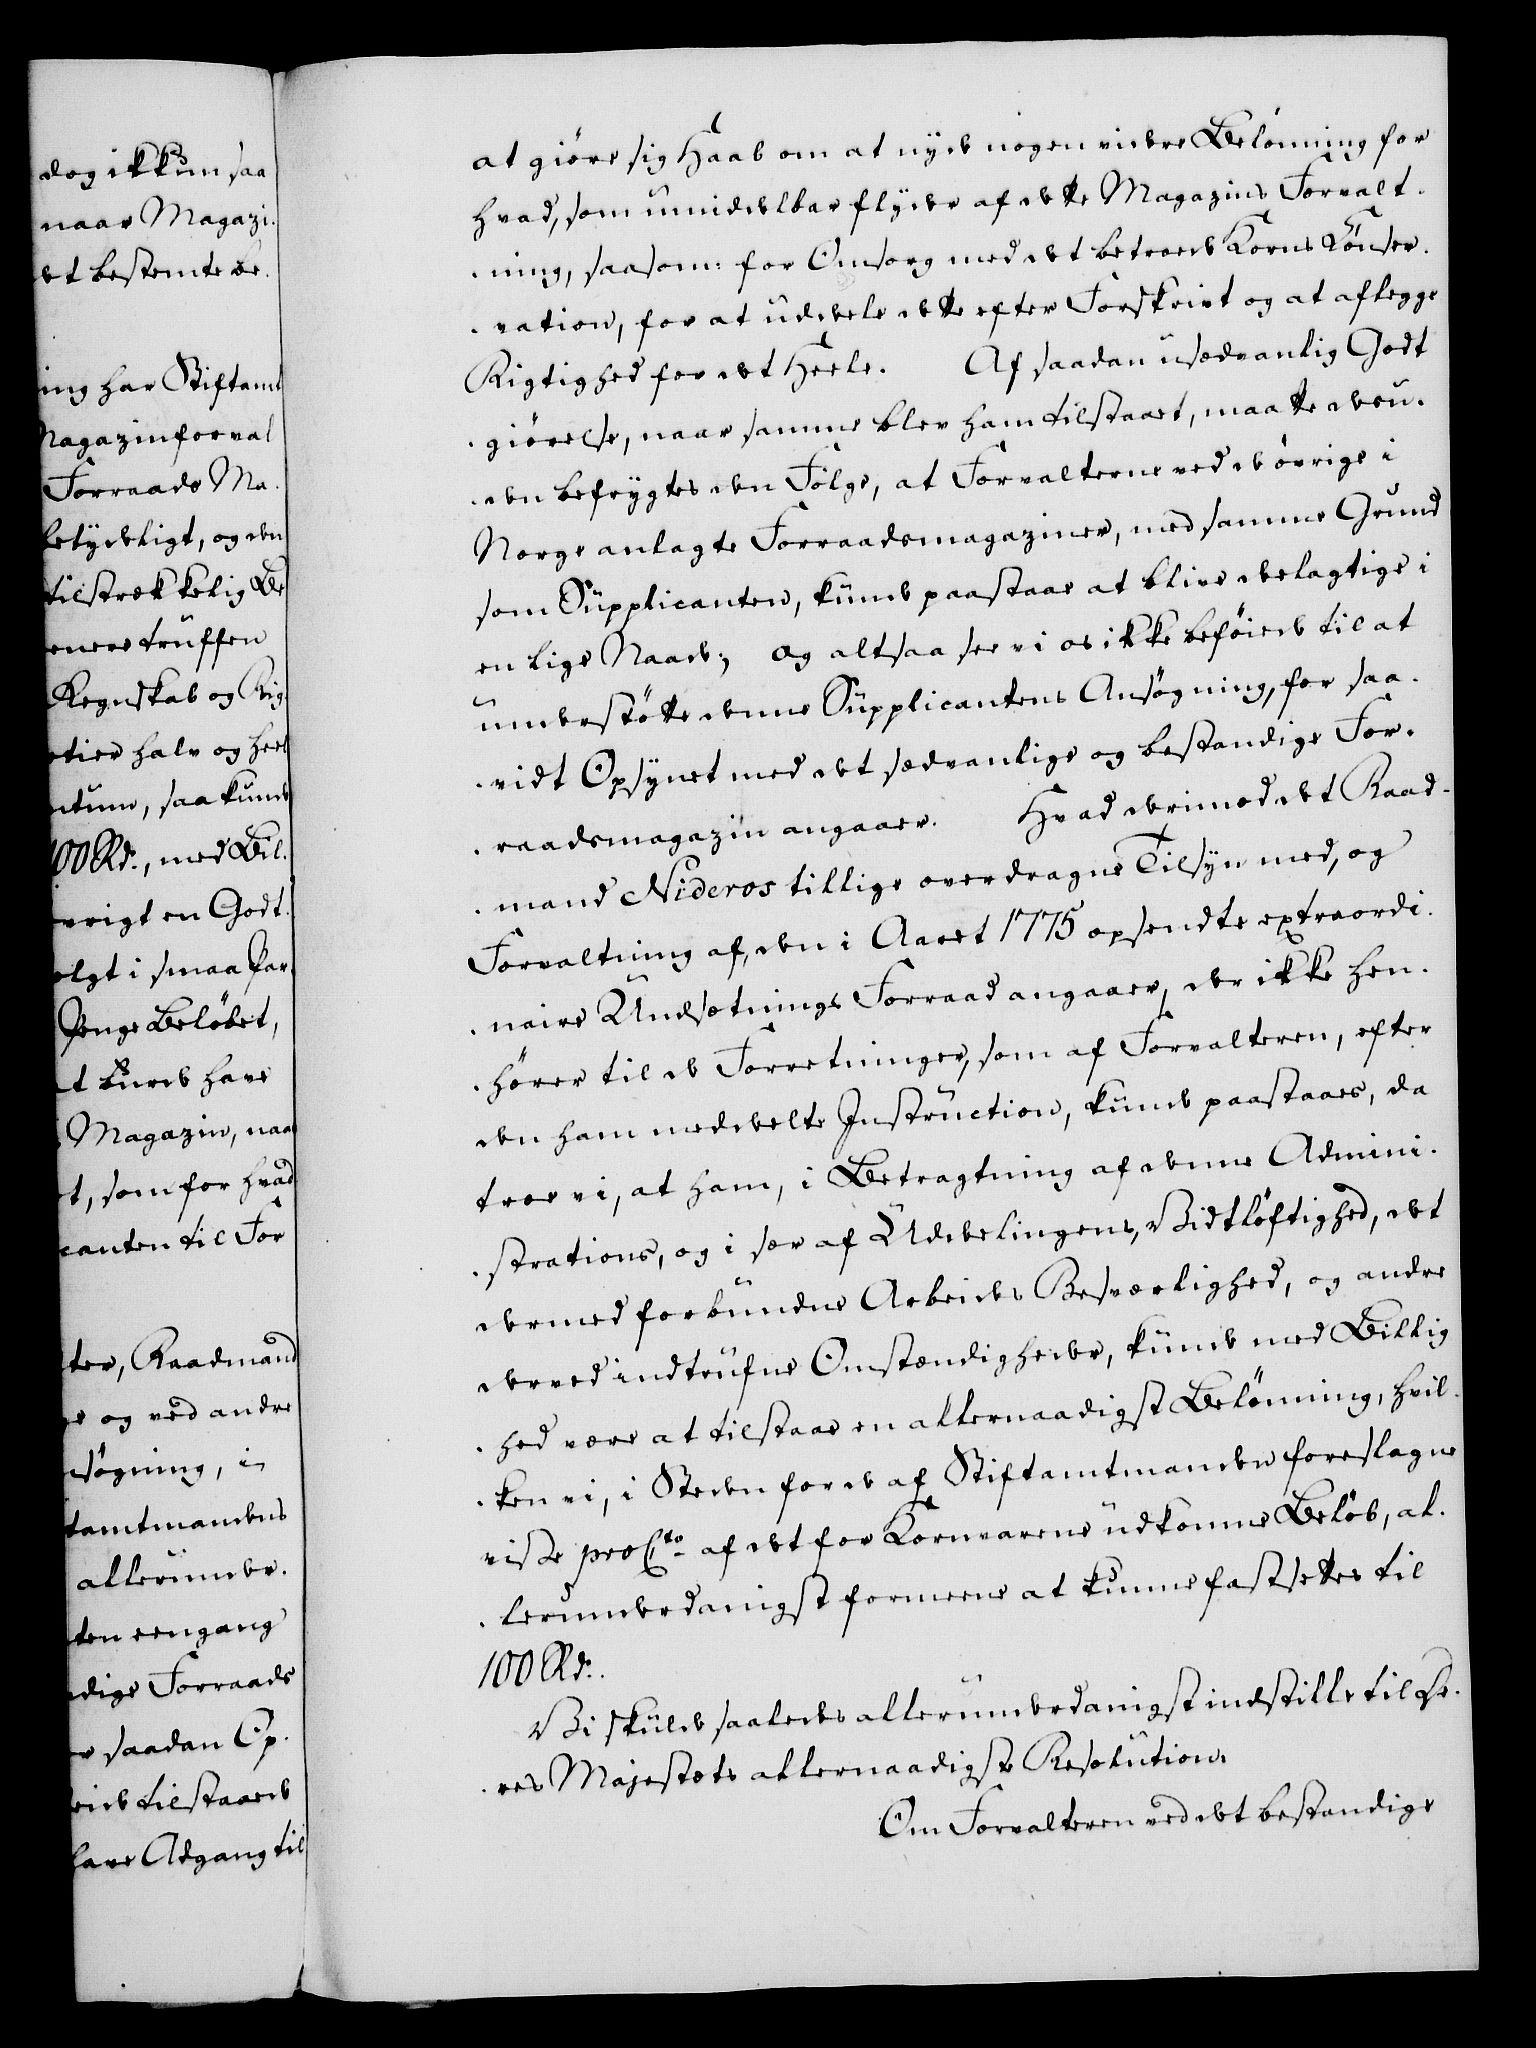 dog ikkun saa
naar Magazi-
et bestemte be-
ing har Stiftamt
Magazinforval
Forraads Ma-
betydeligt, og den
tilstrækkelig Be
enere truffen
Regnskab og Rig
tier halv og heel
ntum, saa kunde
100 Rd., med Bil-
vrigt en Godt-
olgt i smaa Par-
Penge Beløbet,
t burde have
Magazin, naa
t, som for hvad
canten til For
ter, Raadmand
e og ved andre
nsøgning, i
tamtmandens
allerunder-
ten eengang
dige Forraads
r saadan Op-
eide tilstaaede
have Adgang til
at giøre sig Haab om at nyde nogen videre Belønning for
hvad, som umiddelbar flyder af dette Magazins Forvalt-
-ning, saasom: for Omsorg med det betroede Korns Conser-
-vation, for at uddeele dette efter Forskrivt og at aflegge
Rigtighed for det Heele. Af saadan usædvanlig Godt
-giørelse, naar samme blev ham tilstaaet, maatte desu-
-den befrygtes den Følge, at Forvalterne ved de øvrige i
Norge anlagte Forraadsmagaziner, med samme Grund
som Supplicanten, kunde paastaae at blive deelagtige i
en lige Naade; og altsaa see vi os ikke beføiede til at
understøtte denne Supplicantens Ansøgning, for saa-
-vidt Opsynet med det sædvanlige og bestandige For-
-raadsmagazin angaaer. Hvad derimod det Raad-
-mand Nideros tillige overdragne Tilsyn med, og
Forvaltning af, den i Aaret 1775 opsendte extraordi-
-naire Undsætnings Forraad angaaer, der ikke hen-
-hører til de Forretninger, som af Forvalteren, efter
den ham meddeelte Instruction, kunde paastaaes, da
troe vi, at ham, i Betragtning af denne Admini-
-strations, og i sær af Uddeelingens, Vidtløftighed, det
dermed forbundne Arbeides Besværlighed, og andre
derved indtrufne Omstændigheder, kunde med Billig
-hed være at tilstaae en allernaadigst Belønning, hvil-
-ken vi, i Steden for de af Stiftamtmanden foreslagne
visse pro Cto af det for Kornvarene udkomne Beløb, al-
-lerunderdanigst formeene at kunne fastsettes til
100 Rd.
Vi skulde saaledes allerunderdanigst indstille til De-
-res Majestets allernaadigste Resolution.
Om Forvalteren ved det bestandige